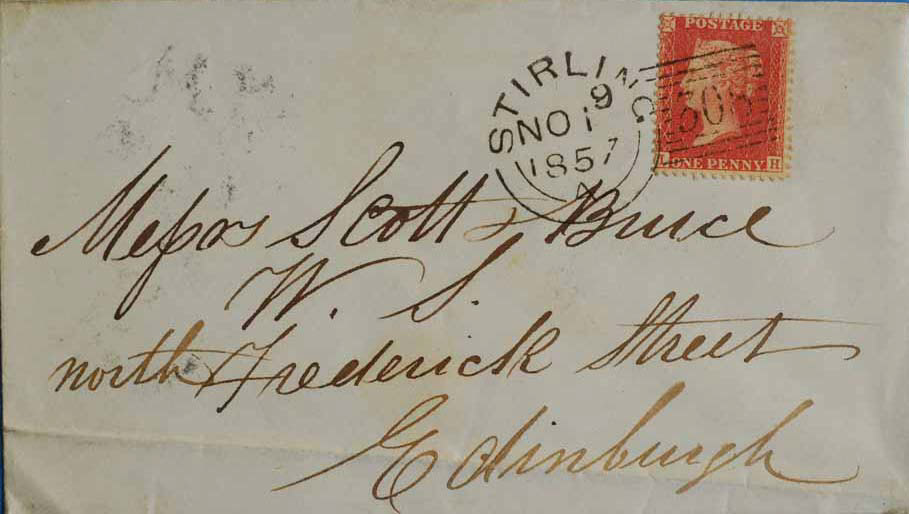 POSTAGE
STIRLING
NO 19
1857
A
308
L ONE PENNY H
Messrs Scott & Bruce
W. S.
north Frederick Street
Edinburgh